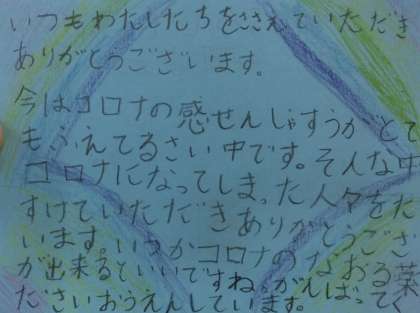 いつもわたしたちをささえていただき
ありがとうございます。
今はコロナの感せんしゃすうがとて
もふえてるさい中です。そんな中
コロナになってしまった人々をた
すけていただきありがとうござ
います。いつかコロナのなおる薬
が出来るといいですね。がんばってく
ださいおうえんしています。